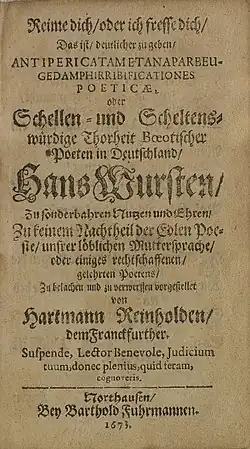 Reime dich/ oder ich fresse dich/
Das ist/ deutlicher zu geben/
ANTIPERICATAMETANAPARBEU-
GEDAMPHIRRIBIFICATIONES
POETICÆ,
oder
Schellen- und Scheltens-
würdige Thorheit Bœotischer
Poeten in Deutschland/
Hans Wursten/
Zu sonderbahren Nutzen und Ehren/
Zu keinem Nachtheil der Edlen Poe-
sie/ unsrer löblichen Muttersprache/
oder einiges rechtschaffenen/
gelehrten Poetens/
Zu belachen und zu verwerffen vorgestellet
von
Hartmann Reinholden/
dem Franckfurther.
Suspende, Lector Benevole, Judicium
tuum, donec plenius, quid feram,
cognoveris.
Northausen/
Bey Barthold Fuhrmannen.
1673.